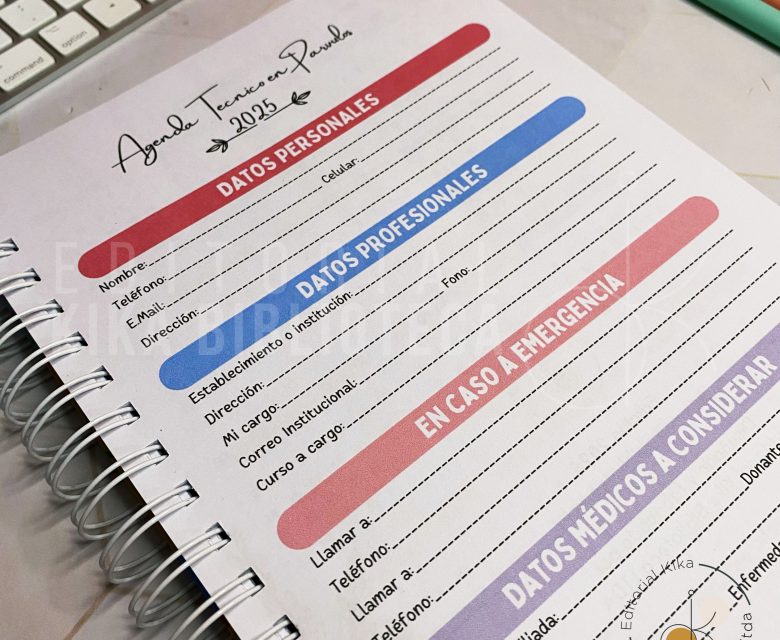 command
option
Agenda Tecnico en Parvulos
2025
DATOS PERSONALES
Nombre:
Teléfono: Celular:
E.Mail:
Dirección:
DATOS PROFESIONALES
Establecimiento o institución:
Dirección: Fono:
Mi cargo:
Correo Institucional:
Curso a cargo:
EN CASO A EMERGENCIA
Llamar a:
Teléfono:
Llamar a:
Teléfono:
DATOS MÉDICOS A CONSIDERAR
Donant
Enfermed
EDITORIAL
KIKA BIBLIOTECA
Editorial Kika
ltda